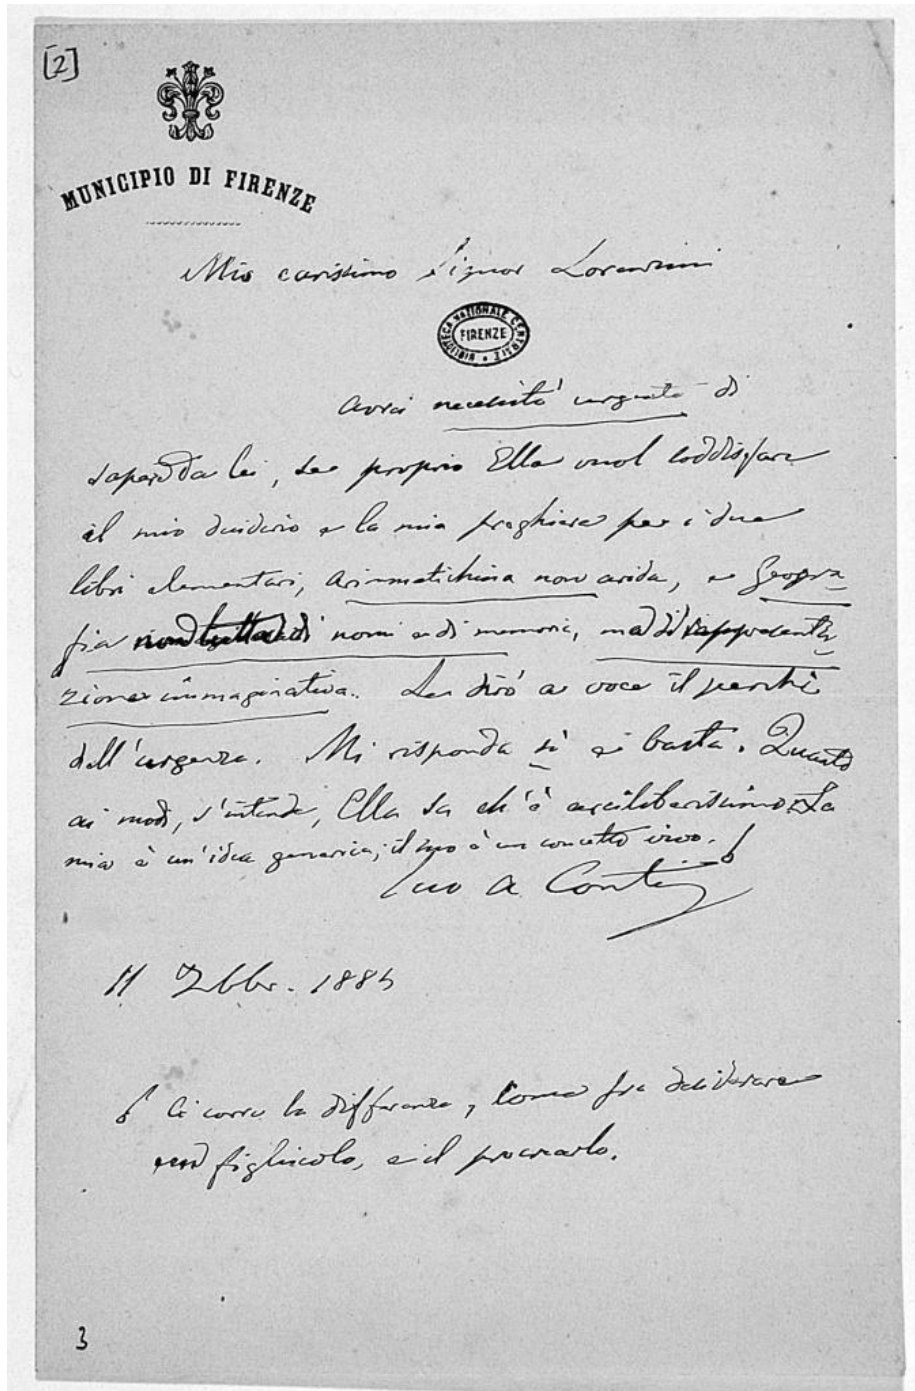 [2]
MUNICIPIO DI FIRENZE
Mio carissimo Signor Lorenzini
BIBLIOTECA NAZIONALE CENTRALE
FIRENZE
Avrei necessità urgente di
saper da lei, se proprio Ella vuol soddisfare
il mio desiderio e la mia preghiera per i due
libri elementari, Arimmetichina non arida, e Geogra-
fia non di nomi e di memoria, ma di rappresenta-
zione immaginativa. Le dirò a voce il perché
dell'urgenza. Mi risponda sì e basta. Quanto
ai modi, s'intende, Ella sa ch'è arciliberissimo. La
mia è un'idea generica; il suo è un concetto vivo.
Suo A. Conti
11 7bbr. 1885
Ci corre la differenza, come fra desiderare
un figliuolo, e il procrearlo.
3